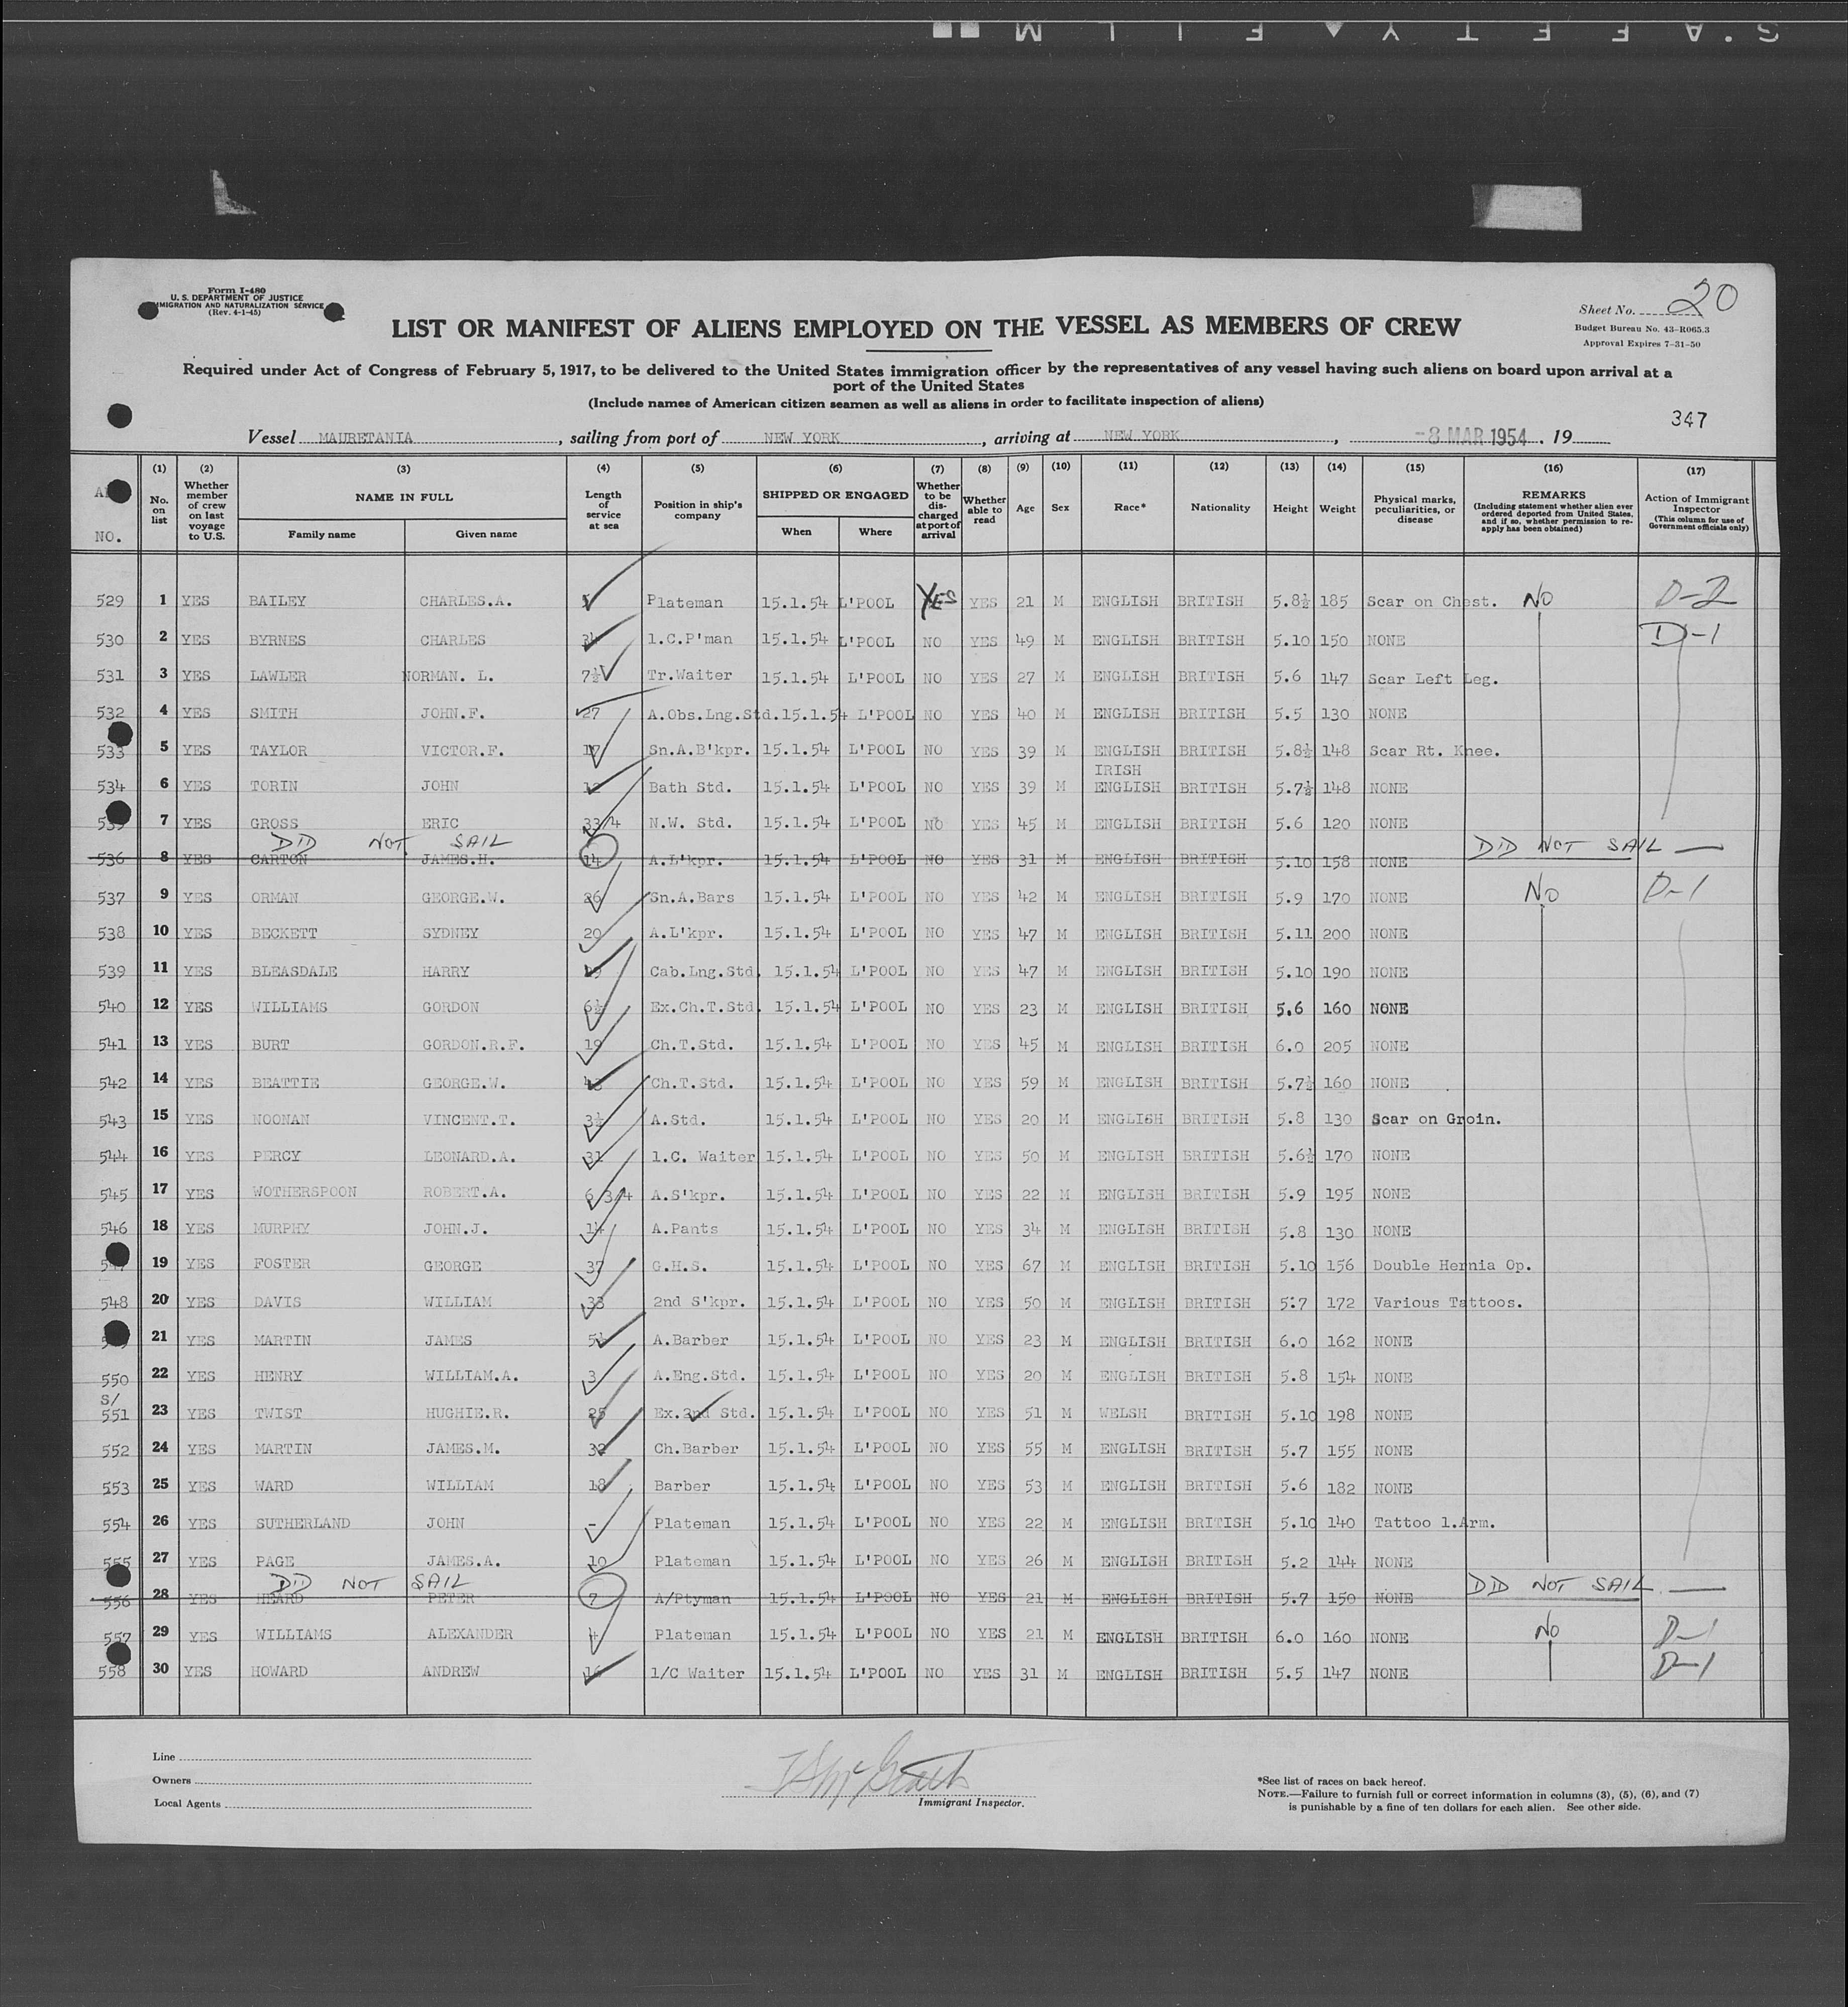 SAFETY FILM
Form I-480
U. S. DEPARTMENT OF JUSTICE
IMMIGRATION AND NATURALIZATION SERVICE
(Rev. 4-1-45)
Sheet No. 20
Budget Bureau No. 43-R065.3
Approval Expires 7-31-50
LIST OR MANIFEST OF ALIENS EMPLOYED ON THE VESSEL AS MEMBERS OF CREW
Required under Act of Congress of February 5, 1917, to be delivered to the United States immigration officer by the representatives of any vessel having such aliens on board upon arrival at a
port of the United States
(Include names of American citizen seamen as well as aliens in order to facilitate inspection of aliens)
347
Vessel MAURETANIA, sailing from port of NEW YORK, arriving at NEW YORK, -8 MAR 1954, 19
(1) (2) (3) (4) (5) (6) (7) (8) (9) (10) (11) (12) (13) (14) (15) (16) (17)
NO.
No. on list
Whether member of crew on last voyage to U.S.
NAME IN FULL
Family name
Given name
Length of service at sea
Position in ship's company
SHIPPED OR ENGAGED
When
Where
Whether to be discharged at port of arrival
Whether able to read
Age
Sex
Race*
Nationality
Height
Weight
Physical marks, peculiarities, or disease
REMARKS
(Including statement whether alien ever ordered deported from United States, and if so, whether permission to reapply has been obtained)
Action of Immigrant Inspector
(This column for use of Government officials only)
529 1 YES BAILEY CHARLES.A. Plateman 15.1.54 L'POOL YES YES 21 M ENGLISH BRITISH 5.8½ 185 Scar on Chest. NO D-2
530 2 YES BYRNES CHARLES 34 1.C.P'man 15.1.54 L'POOL NO YES 49 M ENGLISH BRITISH 5.10 150 NONE D-1
531 3 YES LAWLER NORMAN. L. 7½ Tr.Waiter 15.1.54 L'POOL NO YES 27 M ENGLISH BRITISH 5.6 147 Scar Left Leg.
532 4 YES SMITH JOHN.F. 27 A.Obs.Lng.Std. 15.1.54 L'POOL NO YES 40 M ENGLISH BRITISH 5.5 130 NONE
533 5 YES TAYLOR VICTOR.F. 17 Sn.A.B'kpr. 15.1.54 L'POOL NO YES 39 M ENGLISH BRITISH 5.8½ 148 Scar Rt. Knee.
IRISH
534 6 YES TORIN JOHN 12 Bath Std. 15.1.54 L'POOL NO YES 39 M ENGLISH BRITISH 5.7½ 148 NONE
535 7 YES GROSS ERIC 33/4 N.W. Std. 15.1.54 L'POOL NO YES 45 M ENGLISH BRITISH 5.6 120 NONE
DID NOT SAIL
536 8 YES CARTON JAMES.H. 14 A.L'kpr. 15.1.54 L'POOL NO YES 31 M ENGLISH BRITISH 5.10 158 NONE DID NOT SAIL —
537 9 YES ORMAN GEORGE.W. 26 Sn.A.Bars 15.1.54 L'POOL NO YES 42 M ENGLISH BRITISH 5.9 170 NONE NO D-1
538 10 YES BECKETT SYDNEY 20 A.L'kpr. 15.1.54 L'POOL NO YES 47 M ENGLISH BRITISH 5.11 200 NONE
539 11 YES BLEASDALE HARRY Cab.Lng.Std. 15.1.54 L'POOL NO YES 47 M ENGLISH BRITISH 5.10 190 NONE
540 12 YES WILLIAMS GORDON 6½ Ex.Ch.T.Std. 15.1.54 L'POOL NO YES 23 M ENGLISH BRITISH 5.6 160 NONE
541 13 YES BURT GORDON.R.F. 19 Ch.T.Std. 15.1.54 L'POOL NO YES 45 M ENGLISH BRITISH 6.0 205 NONE
542 14 YES BEATTIE GEORGE.W. Ch.T.Std. 15.1.54 L'POOL NO YES 59 M ENGLISH BRITISH 5.7½ 160 NONE
543 15 YES NOONAN VINCENT.T. 3½ A.Std. 15.1.54 L'POOL NO YES 20 M ENGLISH BRITISH 5.8 130 Scar on Groin.
544 16 YES PERCY LEONARD.A. 31 1.C. Waiter 15.1.54 L'POOL NO YES 50 M ENGLISH BRITISH 5.6½ 170 NONE
545 17 YES WOTHERSPOON ROBERT.A. 6 3/4 A.S'kpr. 15.1.54 L'POOL NO YES 22 M ENGLISH BRITISH 5.9 195 NONE
546 18 YES MURPHY JOHN.J. 14 A.Pants 15.1.54 L'POOL NO YES 34 M ENGLISH BRITISH 5.8 130 NONE
19 YES FOSTER GEORGE 37 G.H.S. 15.1.54 L'POOL NO YES 67 M ENGLISH BRITISH 5.10 156 Double Hernia Op.
548 20 YES DAVIS WILLIAM 33 2nd S'kpr. 15.1.54 L'POOL NO YES 50 M ENGLISH BRITISH 5.7 172 Various Tattoos.
21 YES MARTIN JAMES 5½ A.Barber 15.1.54 L'POOL NO YES 23 M ENGLISH BRITISH 6.0 162 NONE
550 22 YES HENRY WILLIAM.A. 3 A.Eng.Std. 15.1.54 L'POOL NO YES 20 M ENGLISH BRITISH 5.8 154 NONE
S/
551 23 YES TWIST HUGHIE.R. 25 Ex.2nd Std. 15.1.54 L'POOL NO YES 51 M WELSH BRITISH 5.10 198 NONE
552 24 YES MARTIN JAMES.M. 32 Ch.Barber 15.1.54 L'POOL NO YES 55 M ENGLISH BRITISH 5.7 155 NONE
553 25 YES WARD WILLIAM 18 Barber 15.1.54 L'POOL NO YES 53 M ENGLISH BRITISH 5.6 182 NONE
554 26 YES SUTHERLAND JOHN - Plateman 15.1.54 L'POOL NO YES 22 M ENGLISH BRITISH 5.10 140 Tattoo l.Arm.
555 27 YES PAGE JAMES.A. 10 Plateman 15.1.54 L'POOL NO YES 26 M ENGLISH BRITISH 5.2 144 NONE
DID NOT SAIL
556 28 YES HEARD PETER 7 A/Ptyman 15.1.54 L'POOL NO YES 21 M ENGLISH BRITISH 5.7 150 NONE DID NOT SAIL. —
557 29 YES WILLIAMS ALEXANDER 4 Plateman 15.1.54 L'POOL NO YES 21 M ENGLISH BRITISH 6.0 160 NONE NO D-1
558 30 YES HOWARD ANDREW 16 1/C Waiter 15.1.54 L'POOL NO YES 31 M ENGLISH BRITISH 5.5 147 NONE D-1
Line
Owners
Local Agents
Immigrant Inspector.
*See list of races on back hereof.
NOTE.—Failure to furnish full or correct information in columns (3), (5), (6), and (7)
is punishable by a fine of ten dollars for each alien. See other side.